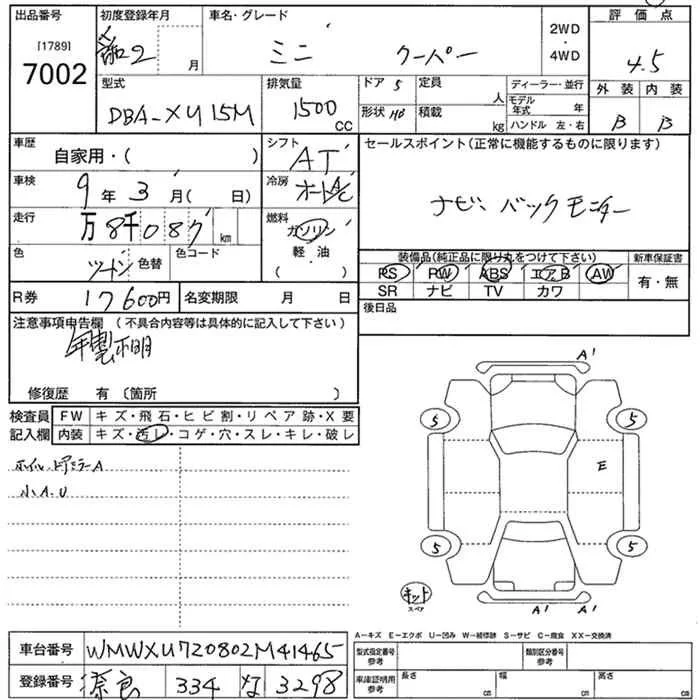 出品番号
[1789]
7002
初度登録年月
令和2
月
車名・グレード
ミニ クーパー
2WD
・
4WD
評価点
4.5
型式
DBA-XU15M
排気量
1500
cc
ドア 5
定員
人
形状 HB
積載
kg
ディーラー・並行
モデル年式 年
ハンドル 左・右
外装
内装
B
B
車歴
自家用・( )
シフト
AT
セールスポイント(正常に機能するものに限ります)
ナビ、バックモニター
車検
9年3月( 日)
冷房
オートA/C
走行
万8千087km
燃料
ガソリン
軽・油
( )
色
ツートン
色替
色コード
装備品(純正品に限り丸をつけて下さい)
新車保証書
PS PW ABS エアB AW
有・無
SR ナビ TV カワ
R券
17600円
名変期限 月 日
後日品
注意事項申告欄 (不具合内容等は具体的に記入して下さい)
年製不明
修復歴 有 〔箇所 〕
検査員
記入欄
FW キズ・飛石・ヒビ割・リペア跡・X要
内装 キズ・汚レ・コゲ・穴・スレ・キレ・破レ
ホイル、ドアミラーA
小A.U
A'
5
5
E
5
5
キット
スペア
A'
A'
A-キズ E-エクボ U-凹み W-補修跡 S-サビ C-腐食 XX-交換済
車台番号
WMWXU720802M41465
登録番号
奈良 334 な 3298
型式指定番号
参考
類別区分番号
参考
車庫証明用
参考
長さ cm
幅 cm
高さ cm